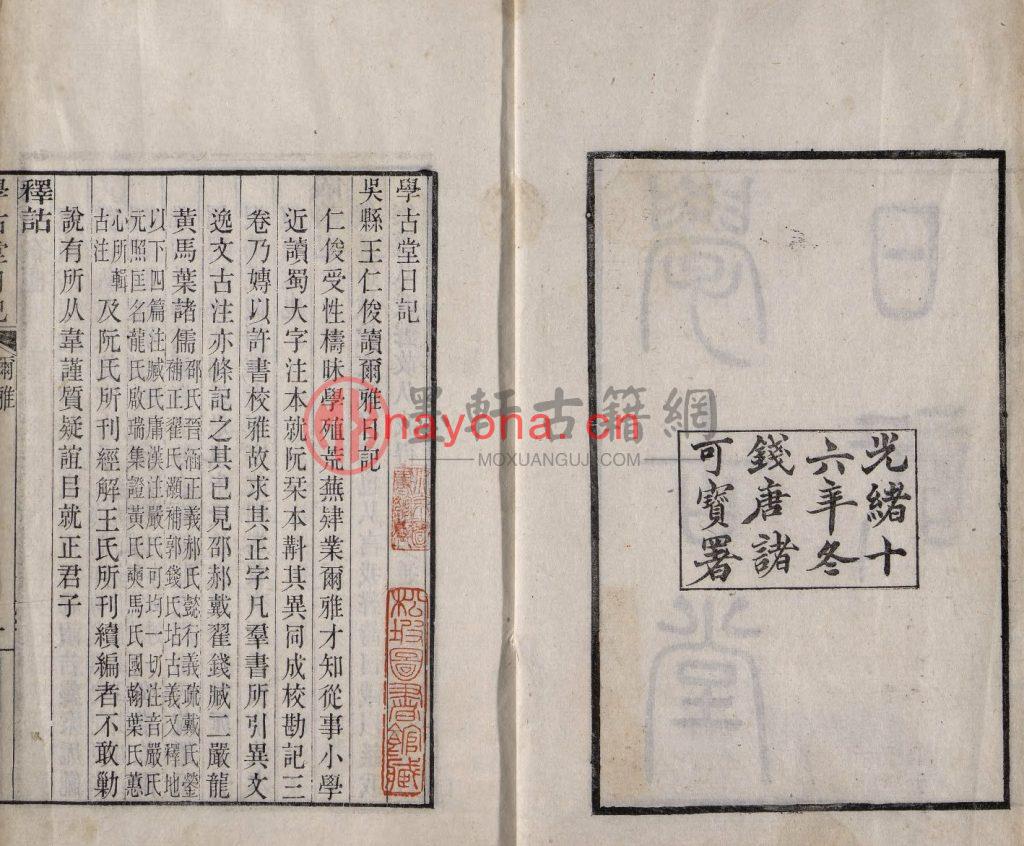 光緒十
六年冬
錢唐諸
可寶署
學古堂日記
吳縣王仁俊讀爾雅日記
仁俊受性檮昧學殖荒蕪肄業爾雅才知從事小學
近讀蜀大字注本就阮栞本斠其異同成校勘記三
卷乃專以許書校雅故求其正字凡羣書所引異文
逸文古注亦條記之其已見邵郝戴翟錢臧二嚴龍
黃馬葉諸儒邵氏晉涵正義郝氏懿行義疏戴氏鎣
補正翟氏灝補郭錢氏坫古義又釋地
以下四篇注臧氏庸漢注嚴氏可均一切注音嚴氏
元照匡名龍氏啟瑞集證黃氏奭馬氏國翰葉氏蕙
心所輯
古注
及阮氏所刊經解王氏所刊續編者不敢勦
說有所从韋謹質疑誼㠯就正君子
釋詁
學古堂日記
爾雅
一
松坡圖書館藏
墨軒古籍網
nayona.cn
MOXUANGUJI.COM